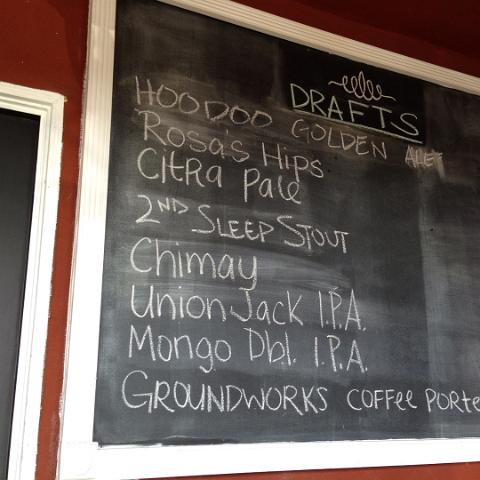 DRAFTS
HOODOO GOLDEN ALE
Rosa's Hips
Citra Pale
2ND SLEEP STOUT
Chimay
Union Jack I.P.A.
Mongo Dbl. I.P.A.
GROUNDWORKS COFFEE PORTE